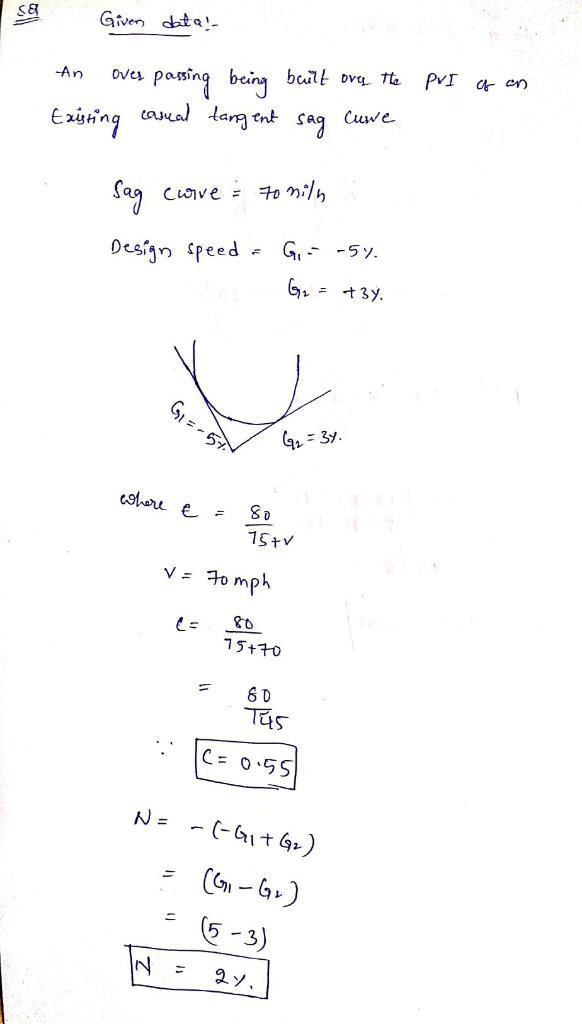 59
Given data:-
An over passing being built over the PVI of an
Existing casual tangent sag curve
Sag curve = 70 mi/h
Design speed = G₁ = -5%.
G₂ = +3%.
G₁ = -5%.
G₂ = 3%.
where e = 80
75+v
V = 70 mph
e = 80
75+70
= 80
145
∵ C = 0.55
N = - (-G₁ + G₂)
= (G₁ - G₂)
= (5 - 3)
N = 2%.